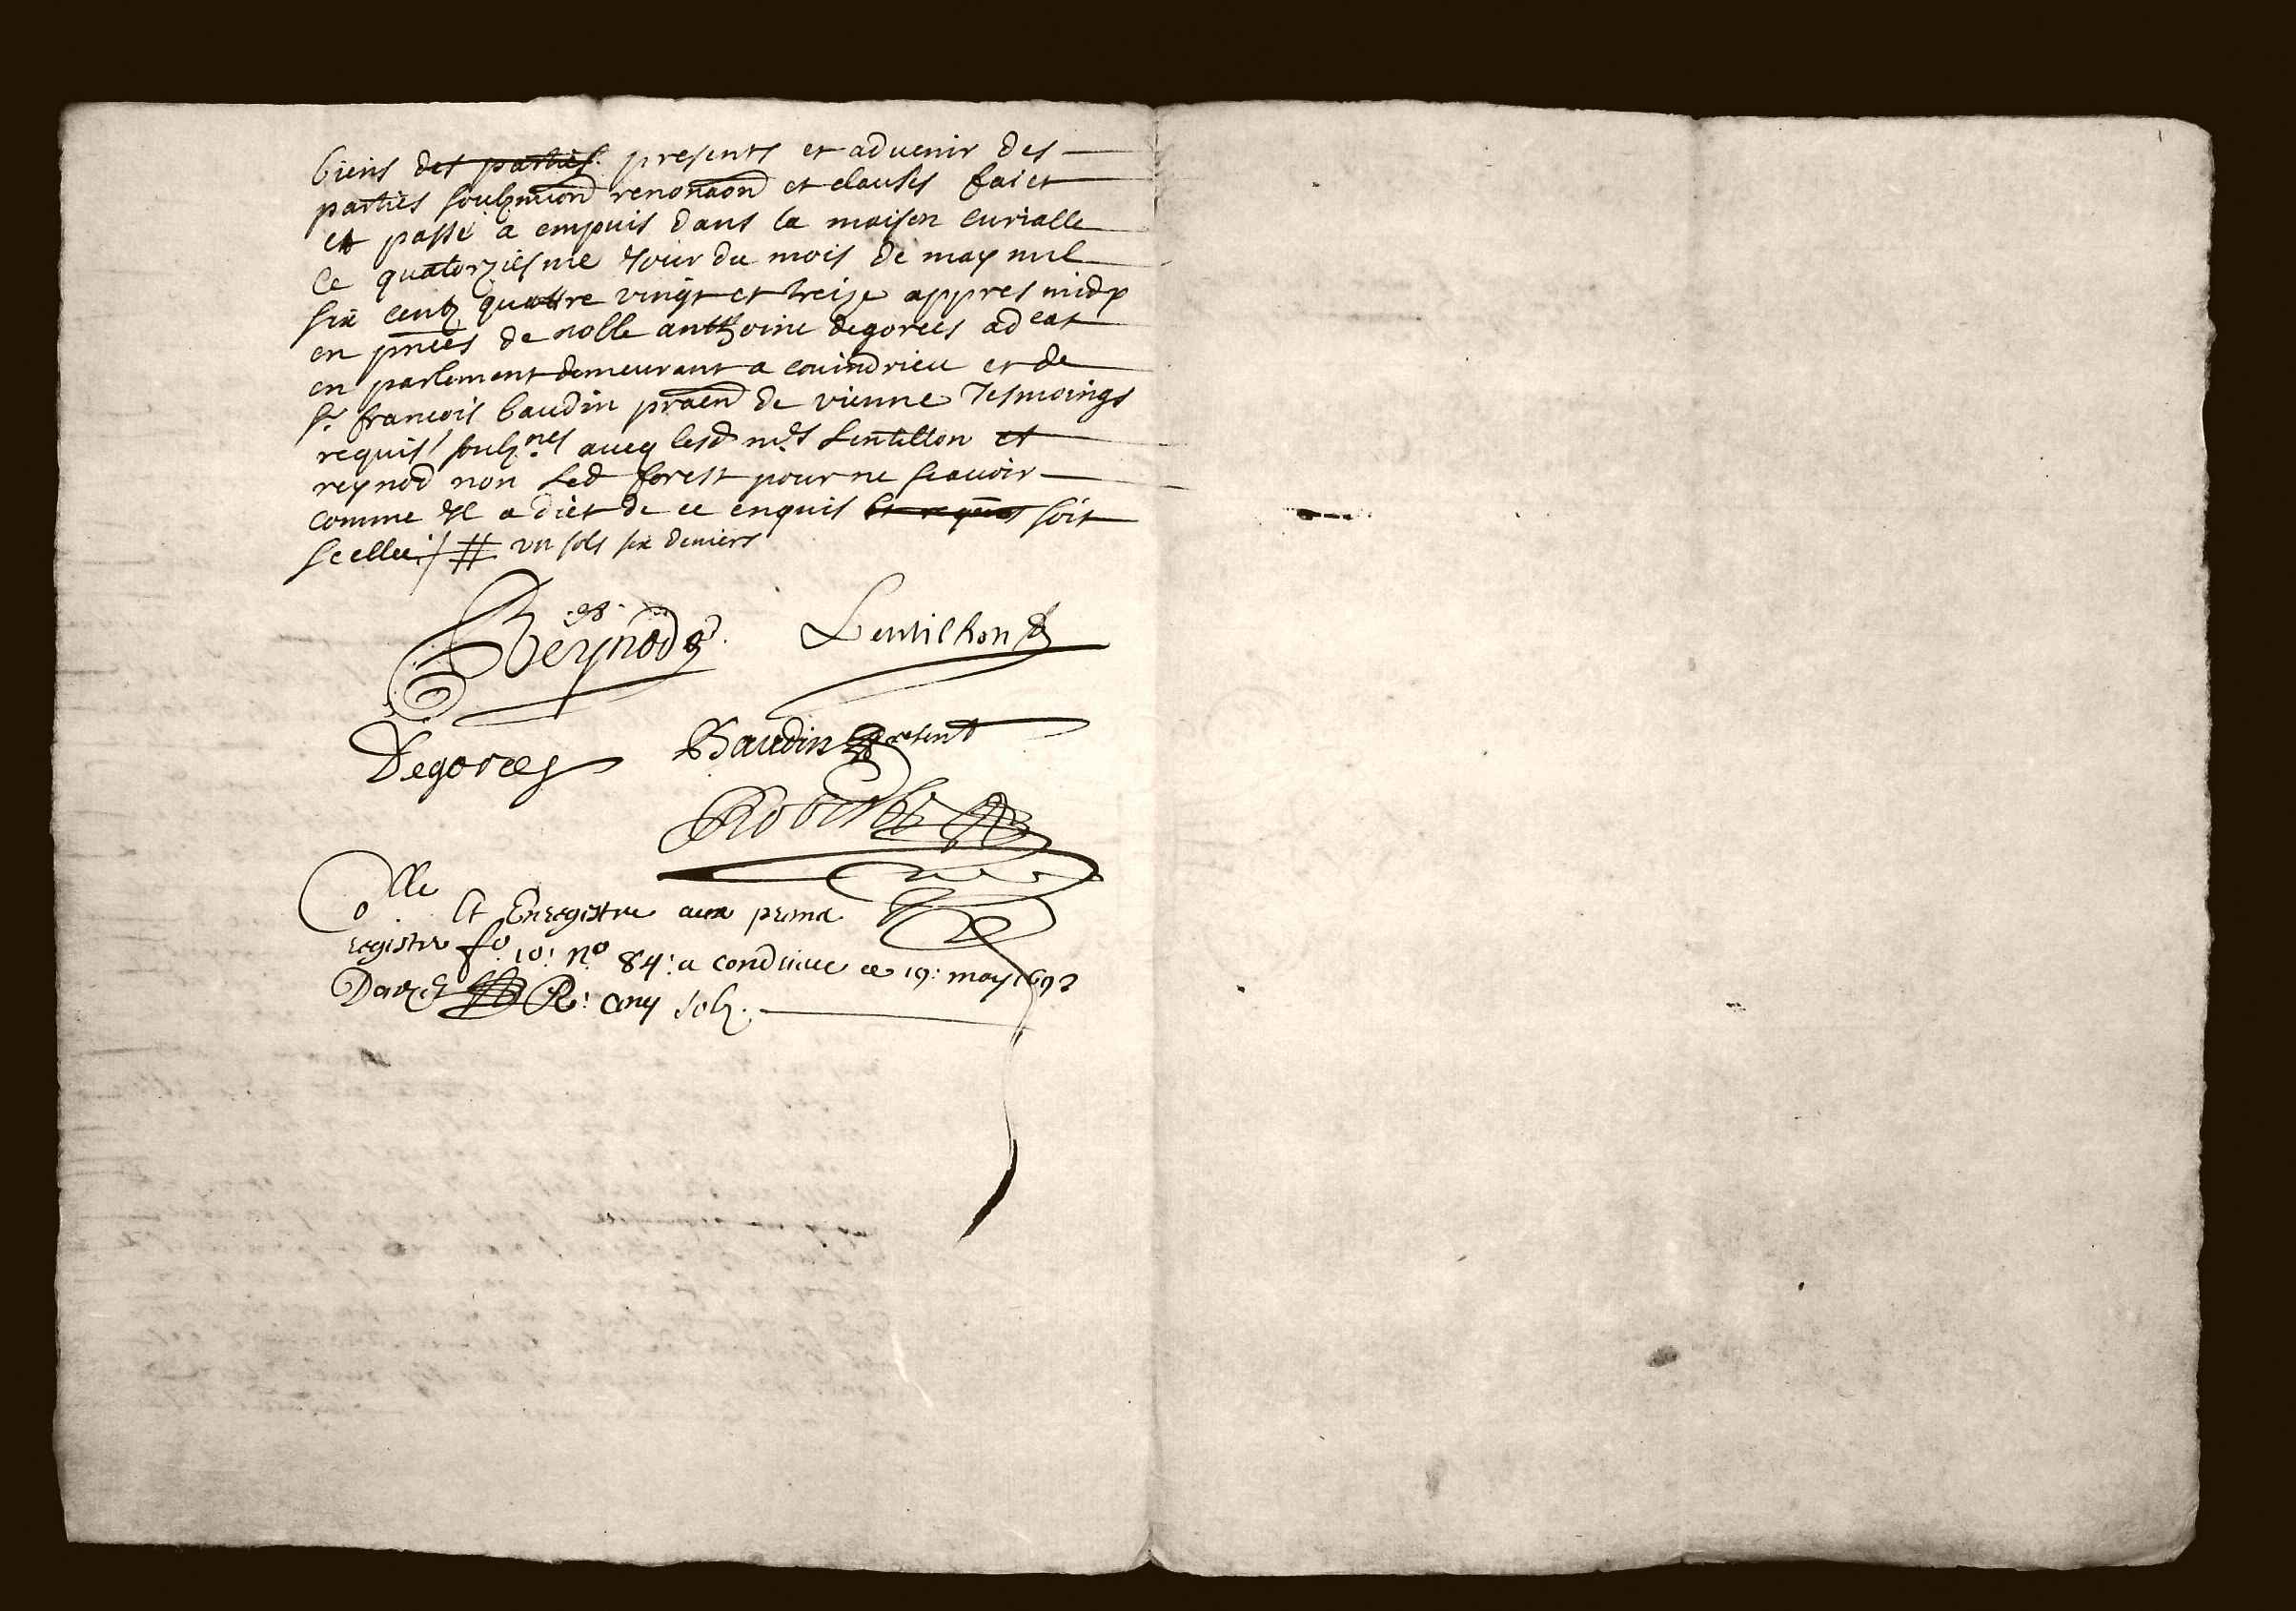 biens des parties presents et advenir des
parties soubmiond renonaond et clauses faict
et passé a empuis dans la maison curialle
le quatorziesme jour du mois de may mil
six centz quattre vingt et treize appres midy
en pnces de noble anthoine degorces adcat
en parlement demeurant a couindrieu et de
sr francois baudin praend de vienne tesmoings
requis soubznes aueq lesd mes Lentillon et
reynod non led forest pour ne scauoir
comme Il a dict de ce enquis et requis soit
scellé / # un sols six deniers
Reynod
Lentilhon
Degorces
Baudin present
Colle et Enregistre aux
registre fo 10: no 84: a condrieue ce 19: may 1693
R: cinq solz.